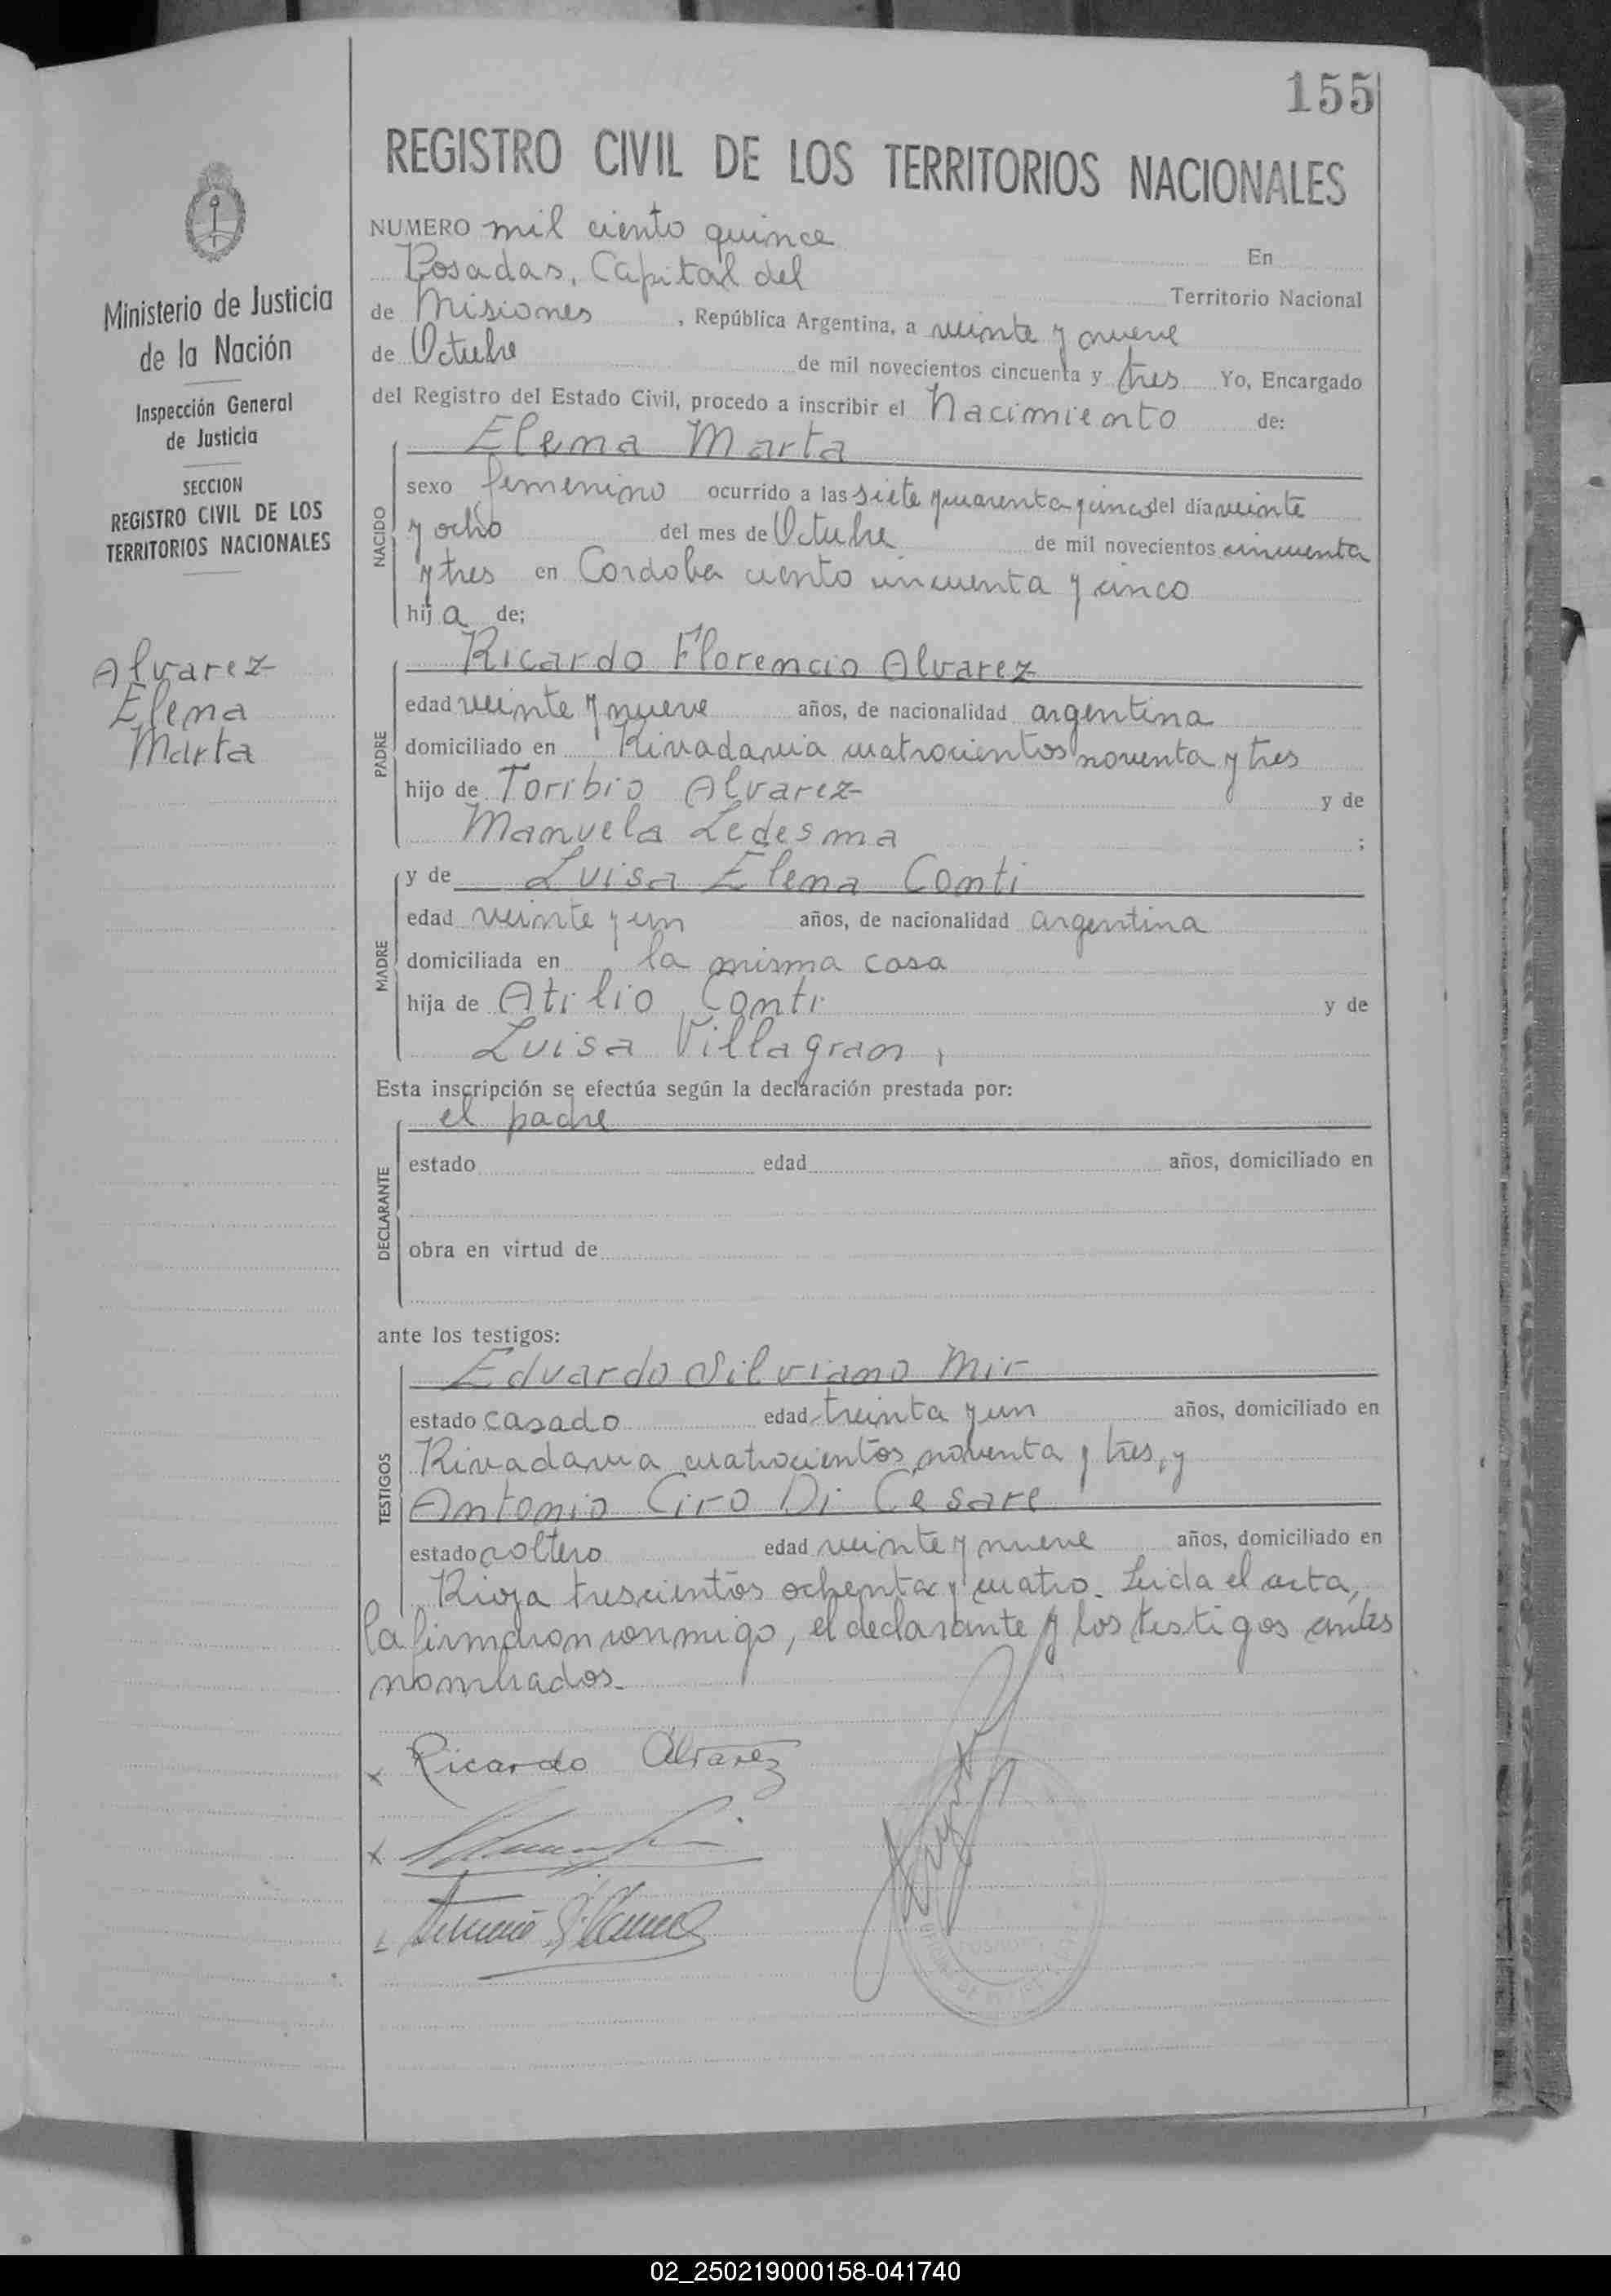 155
REGISTRO CIVIL DE LOS TERRITORIOS NACIONALES
Ministerio de Justicia
de la Nación
Inspección General
de Justicia
SECCION
REGISTRO CIVIL DE LOS
TERRITORIOS NACIONALES
Alvarez
Elena
Marta
NUMERO mil ciento quince
En
Posadas, Capital del Territorio Nacional
de Misiones, República Argentina, a veinte y nueve
de Octubre de mil novecientos cincuenta y tres Yo, Encargado
del Registro del Estado Civil, procedo a inscribir el nacimiento de:
NACIDO
Elena Marta
sexo femenino ocurrido a las siete y cuarenta y cinco del día veinte
y ocho del mes de Octubre de mil novecientos cincuenta
y tres en Cordoba ciento cincuenta y cinco
hija de;
PADRE
Ricardo Florencio Alvarez
edad veinte y nueve años, de nacionalidad argentina
domiciliado en Rivadavia cuatrocientos noventa y tres
hijo de Toribio Alvarez y de
Manuela Ledesma ;
MADRE
y de Luisa Elena Conti
edad veinte y un años, de nacionalidad argentina
domiciliada en la misma casa
hija de Atilio Conti y de
Luisa Villagran,
Esta inscripción se efectúa según la declaración prestada por:
DECLARANTE
el padre
estado edad años, domiciliado en
obra en virtud de
ante los testigos:
TESTIGOS
Eduardo Silviano Mir
estado casado edad treinta y un años, domiciliado en
Rivadavia cuatrocientos noventa y tres, y
Antonio Ciro Di Cesare
estado soltero edad veinte y nueve años, domiciliado en
Rioja trescientos ochenta y cuatro. Leida el acta,
la firmaron conmigo, el declarante y los testigos antes
nombrados.
x Ricardo Alvarez
x
02_250219000158-041740